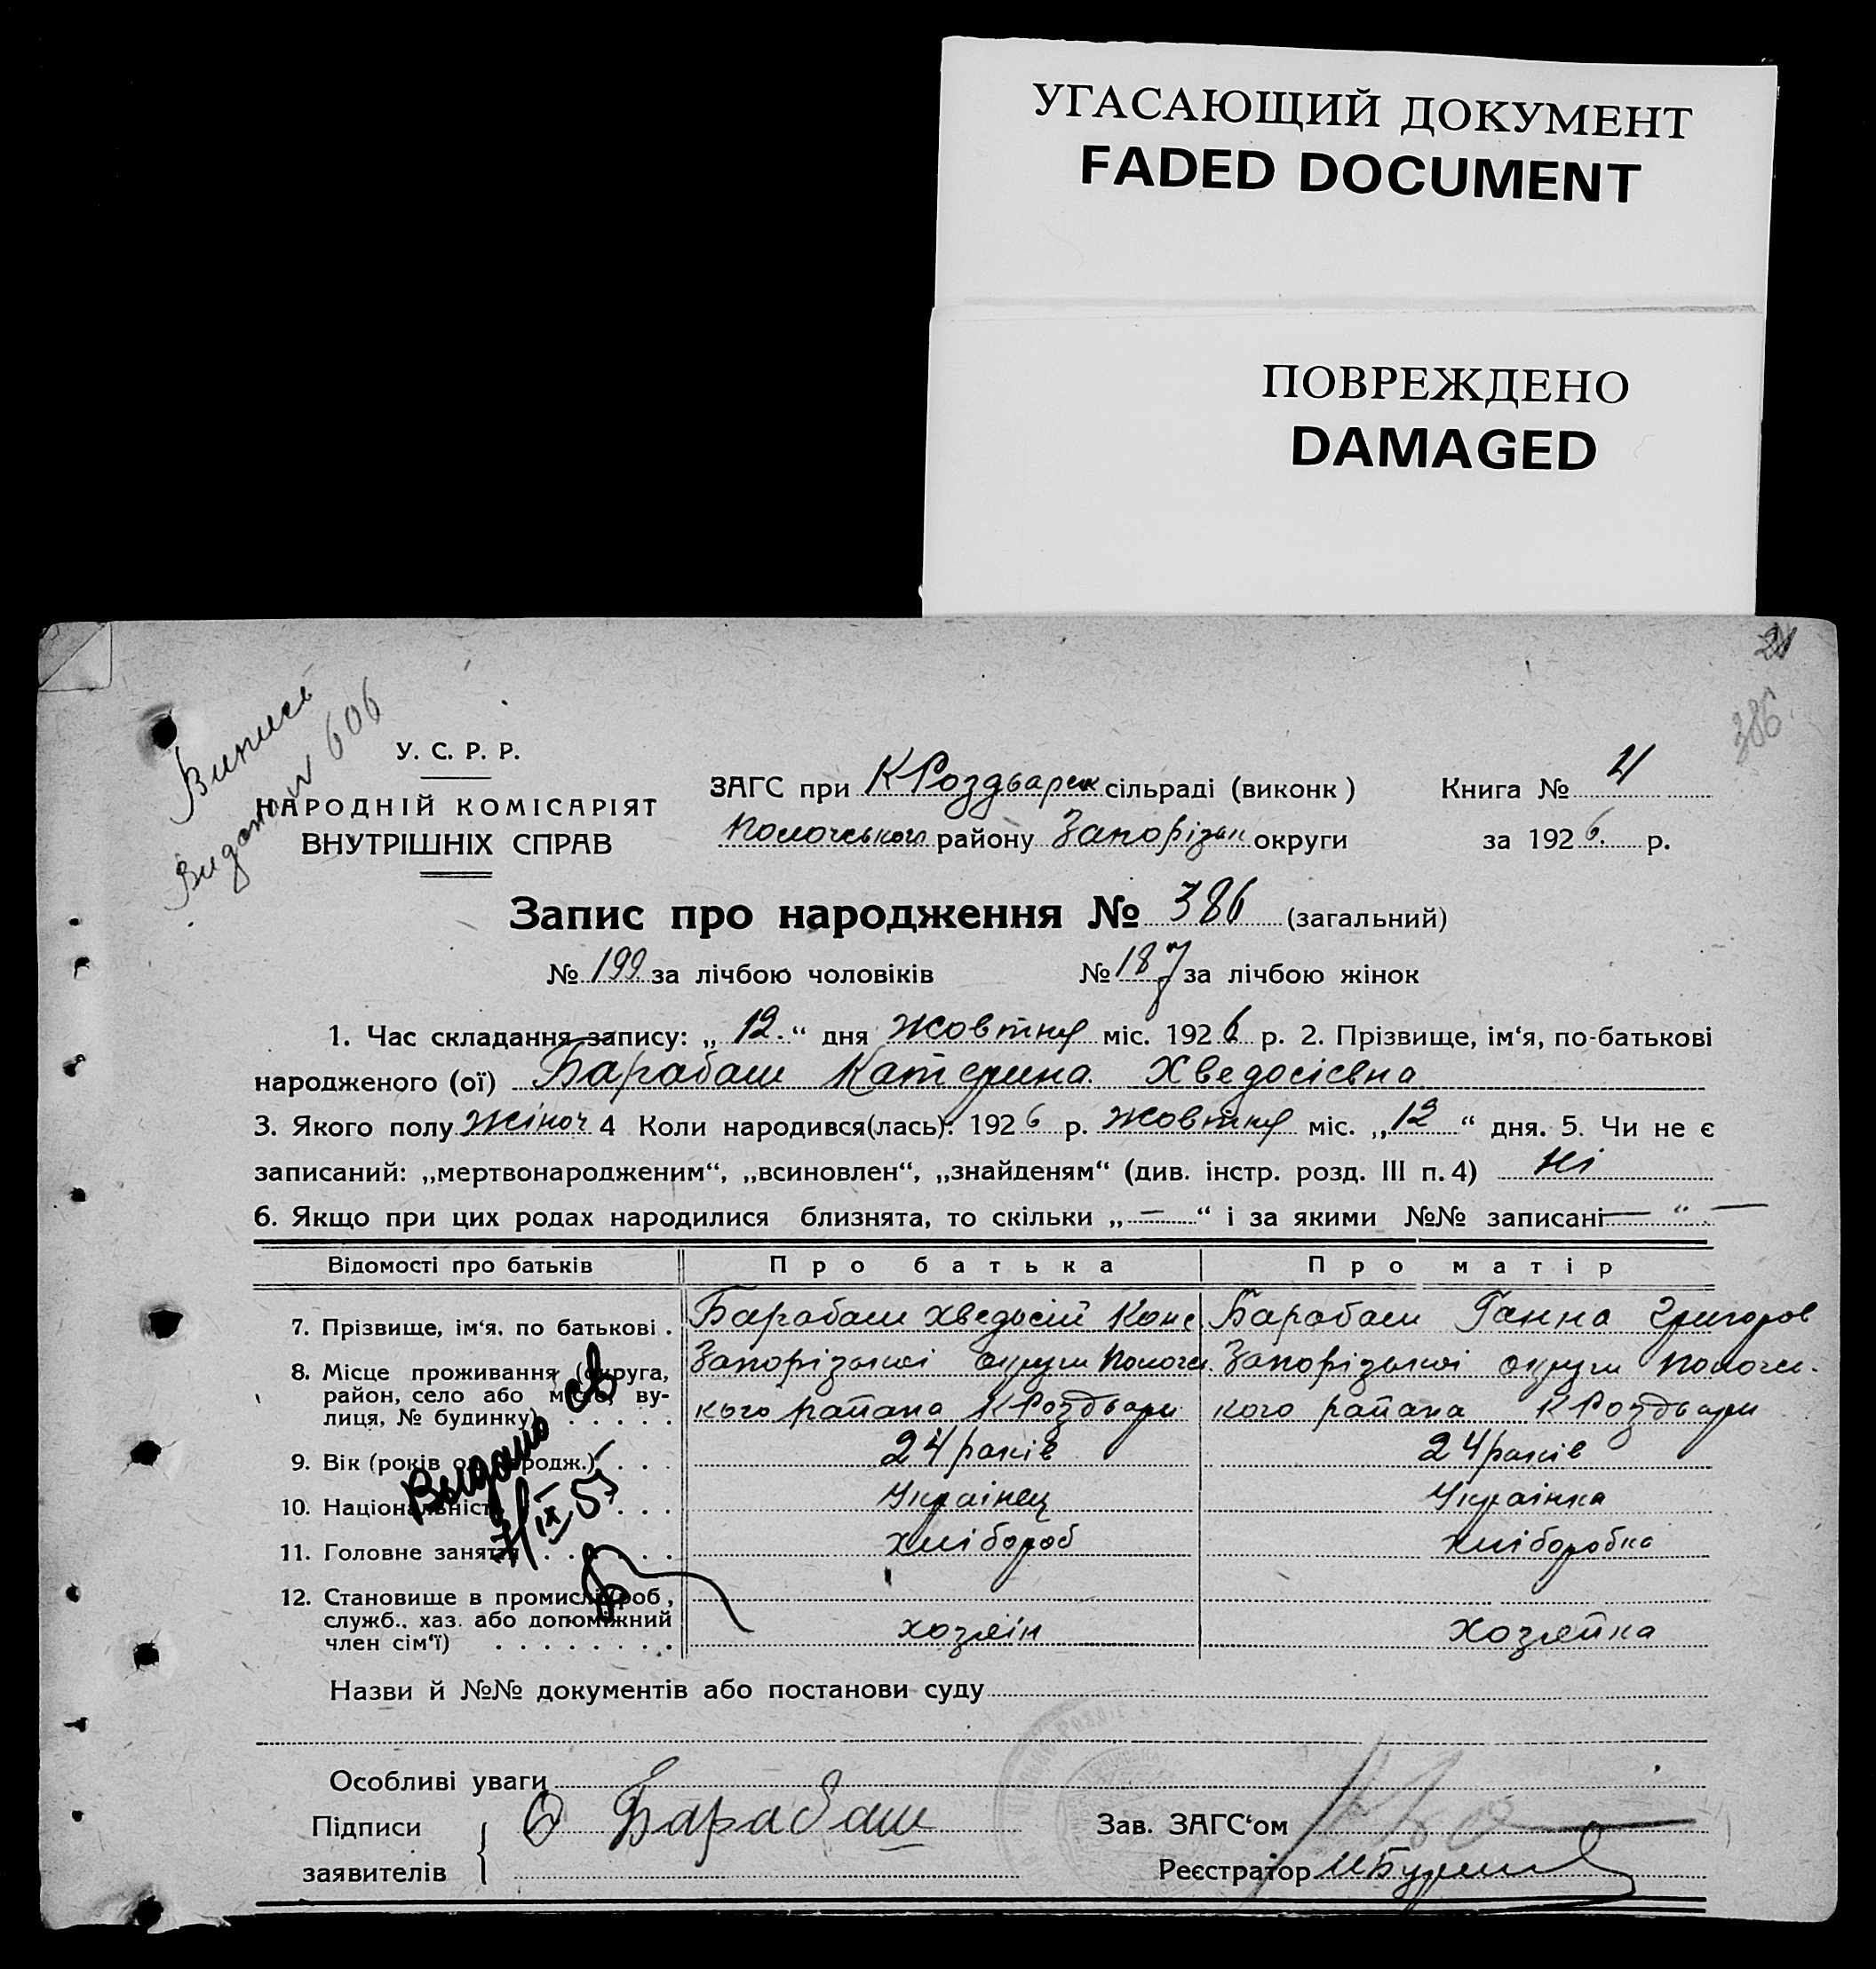 УГАСАЮЩИЙ ДОКУМЕНТ
FADED DOCUMENT
ПОВРЕЖДЕНО
DAMAGED
21
386
Випись
Видано 606
У. С. Р. Р.
НАРОДНІЙ КОМІСАРІЯТ
ВНУТРІШНІХ СПРАВ
ЗАГС при К Роздварск сільраді (виконк ) Книга № 4
Пологського району Запорізьк округи за 1926. р.
Запис про народження № 386 (загальний)
№ 199 за лічбою чоловіків № 187 за лічбою жінок
1. Час складання запису: „ 12. “ дня жовтня міс. 1926 р. 2. Прізвище, ім‘я, по-батькові
народженого (ої) Барабаш Катерина Хведосієвна
3. Якого полу жіноч 4 Коли народився(лась): 1926 р. жовтня міс. „12“ дня. 5. Чи не є
записаний: „мертвонародженим“, „всиновлен“, „знайденям“ (див. інстр. розд. III п. 4) Ні
6. Якщо при цих родах народилися близнята, то скільки „ — “ і за якими №№ записані — “ . —
Відомості про батьків Про батька Про матір
7. Прізвище, ім‘я, по батькові . Барабаш Хведосій Конс Барабаш Ганна Григоров
8. Місце проживання (округа, Запорізької округи Пологи. Запорізької округи Пологи.
район, село або місто, ву- кого району К Роздвари кого району К Роздвари
лиця, № будинку) . . . . .
9. Вік (років од народж.) . . . 24 років 24 років
10. Національність . . . Українец Українка
11. Головне заняття . . . . . . хлібороб хліборобка
12. Становище в промислі (роб ,
служб., хаз. або допоміжний
член сім‘ї) . . . . . . . . хозяїн хозяйка
Выдано св
7/IX 57
Назви й №№ документів або постанови суду
Особливі уваги
Підписи Ф Барабаш Зав. ЗАГС‘ом
заявителів Реєстратор